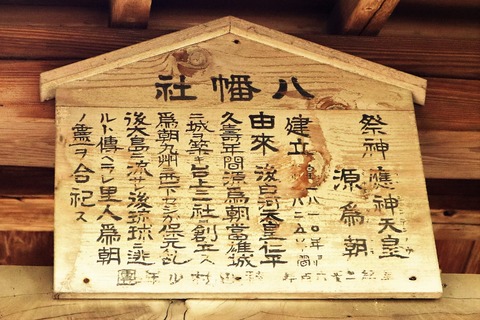 八幡社
祭神 應神天皇
源爲朝
建立
由來 後白河天皇仁平
久壽年間源爲朝當雄城
ニ城ヲ築キ台上ニ社創立ス
爲朝九州西下セシガ保元乱
後大島ニ流レ後琉球ニ逃
ルト傳ヘラレ里人爲朝
ノ靈ヲ合祀ス